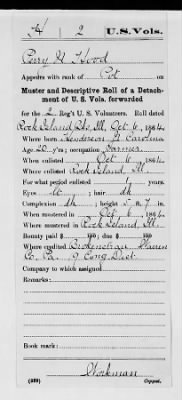 H 2 U.S. Vols.
Perry H Hood
Appears with rank of Pvt on
Muster and Descriptive Roll of a Detach-
ment of U. S. Vols. forwarded
for the 2 Reg't U. S. Volunteers. Roll dated
Rock Island, Ill, Oct 6, 1864.
Where born Henderson N Carolina
Age 20 y'rs; occupation Farmer
When enlisted Oct 6, 1864.
Where enlisted Rock Island Ill.
For what period enlisted 1 years.
Eyes ; hair dk
Complexion dk; height 5 ft. 7 in.
When mustered in Oct 6, 1864.
Where mustered in Rock Island, Ill.
Bounty paid $ 100; due $ 100
Where credited Warren
Co. Pa. 19 Cong. Dist.
Company to which assigned
Remarks:
Book mark:
Workman
(339) Copyist.